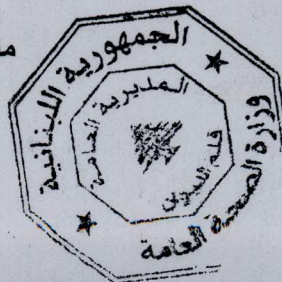 الجمهورية اللبنانية
وزارة الصحة العامة
المديرية العامة
قلم